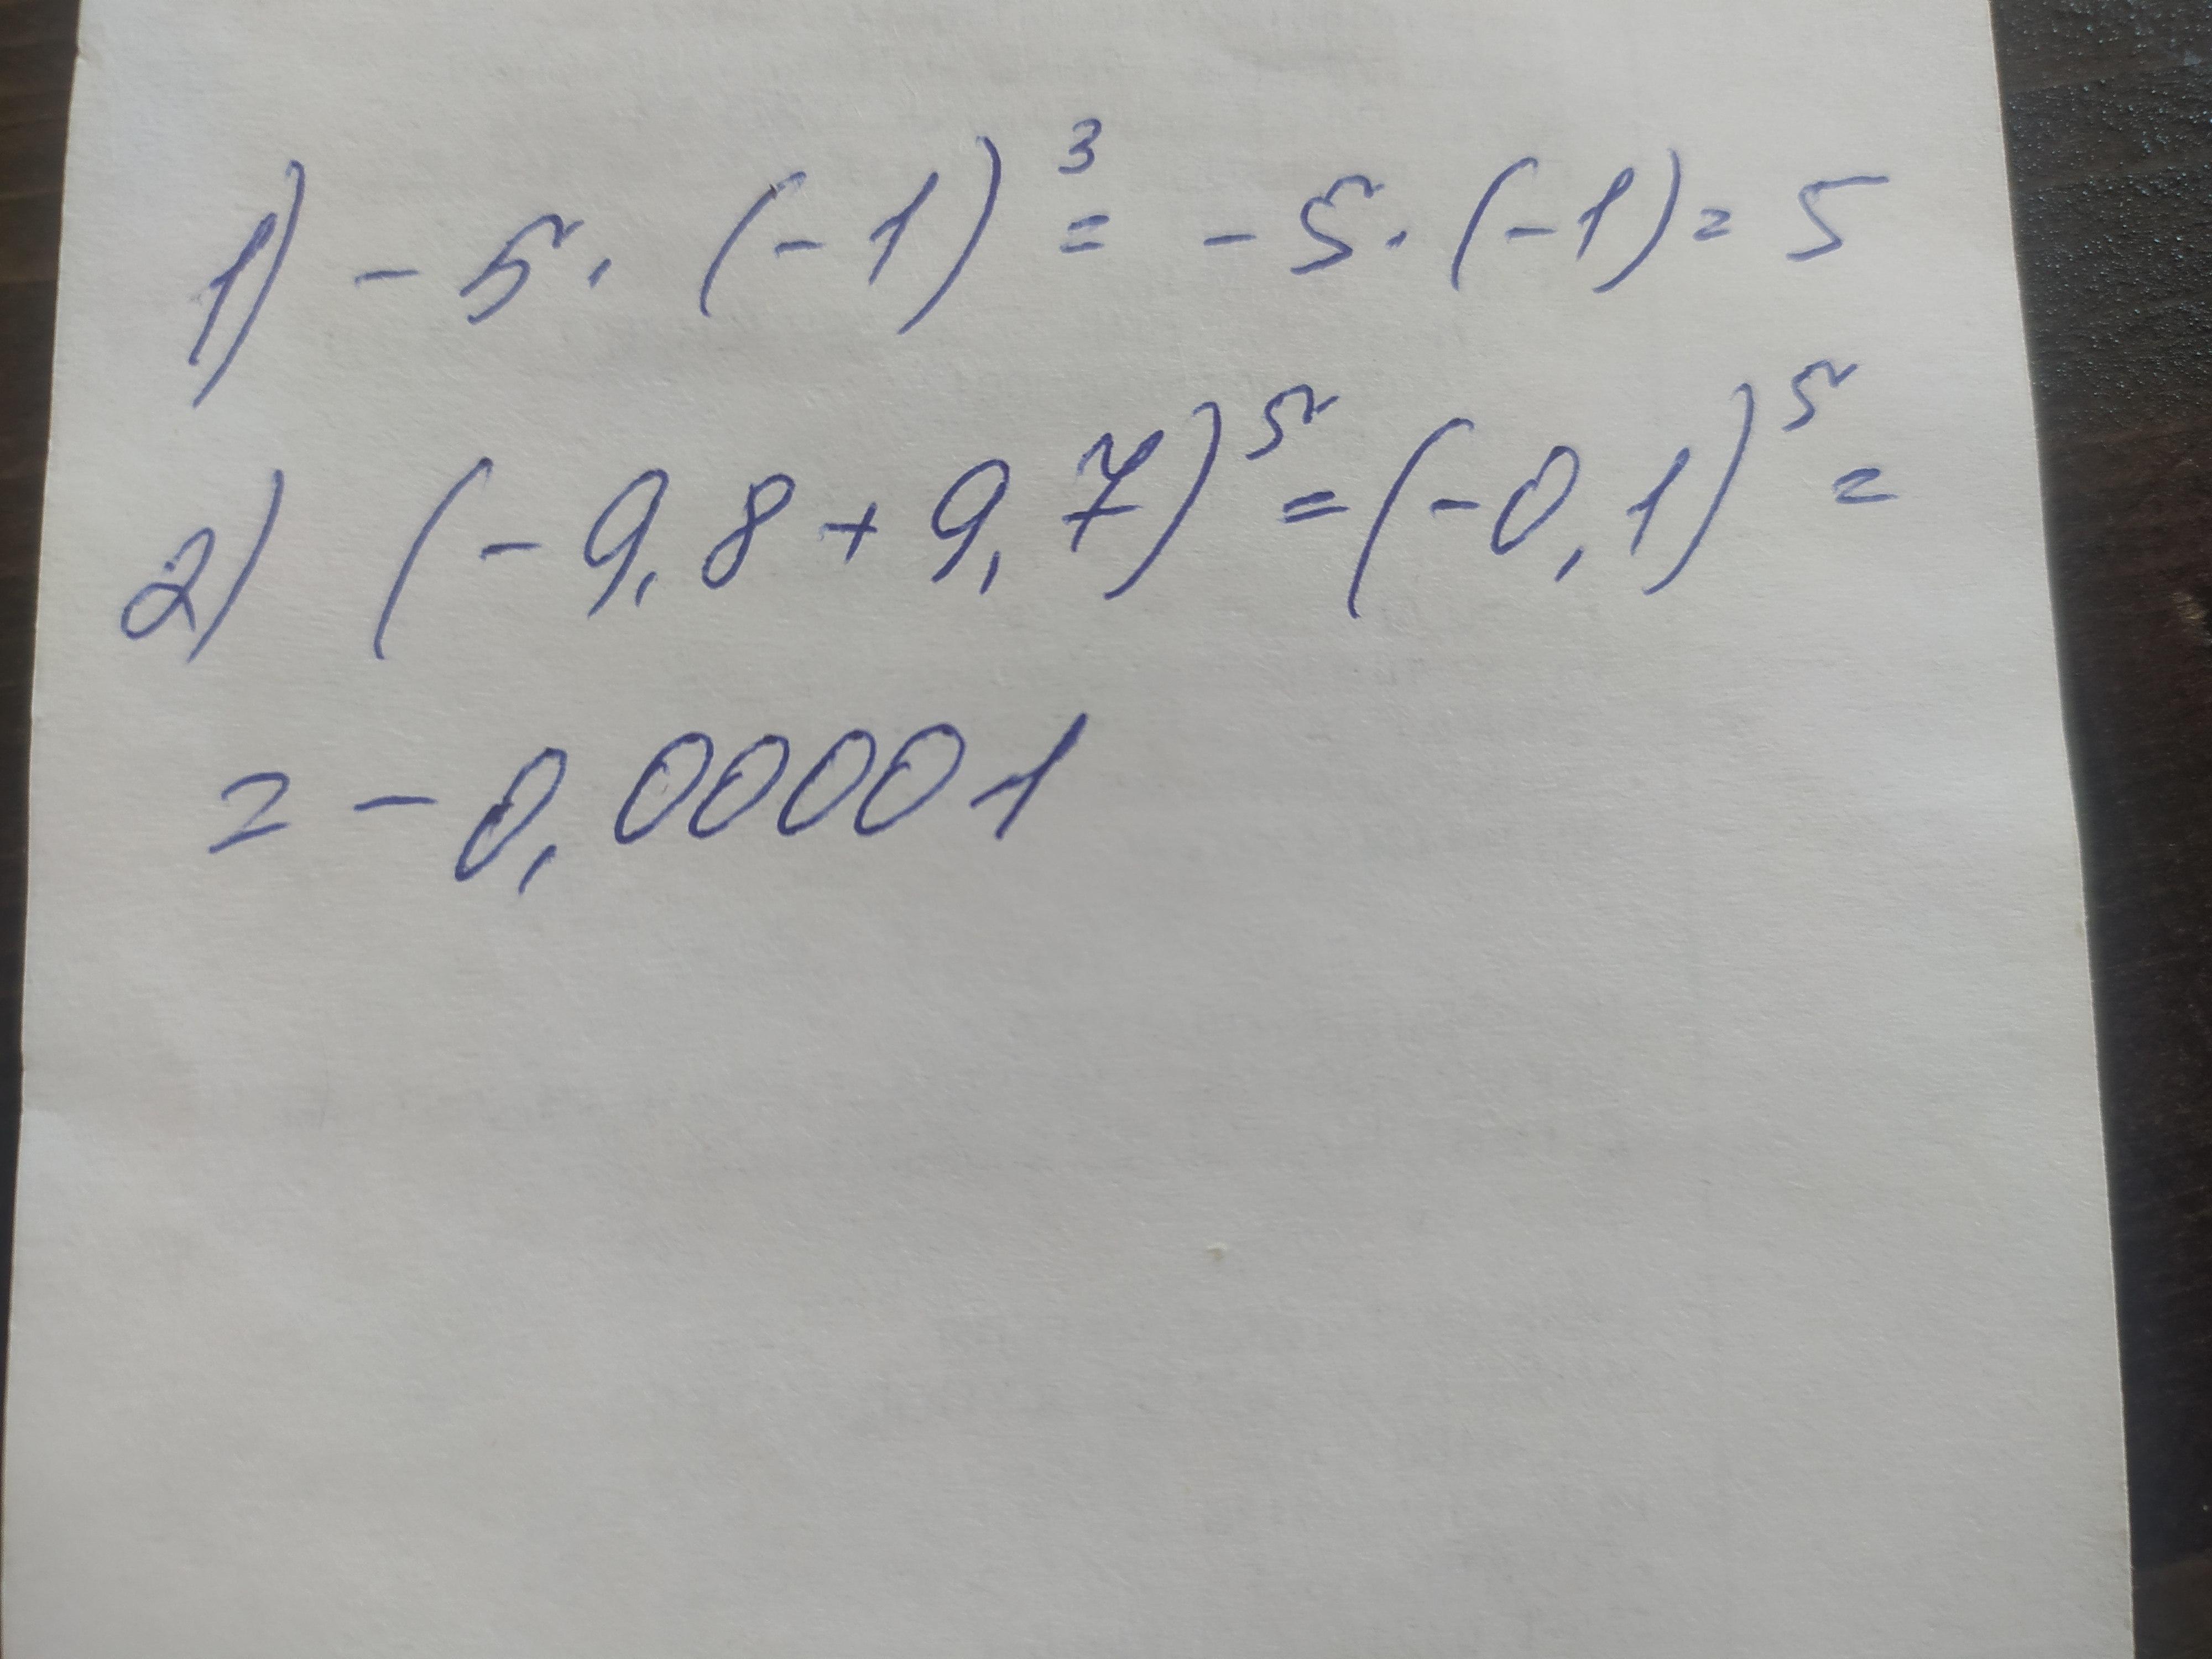 1) - 5 · (-1)³ = - 5 · (-1) = 5
2) (- 9,8 + 9,7)⁵ = (-0,1)⁵ =
= - 0,00001